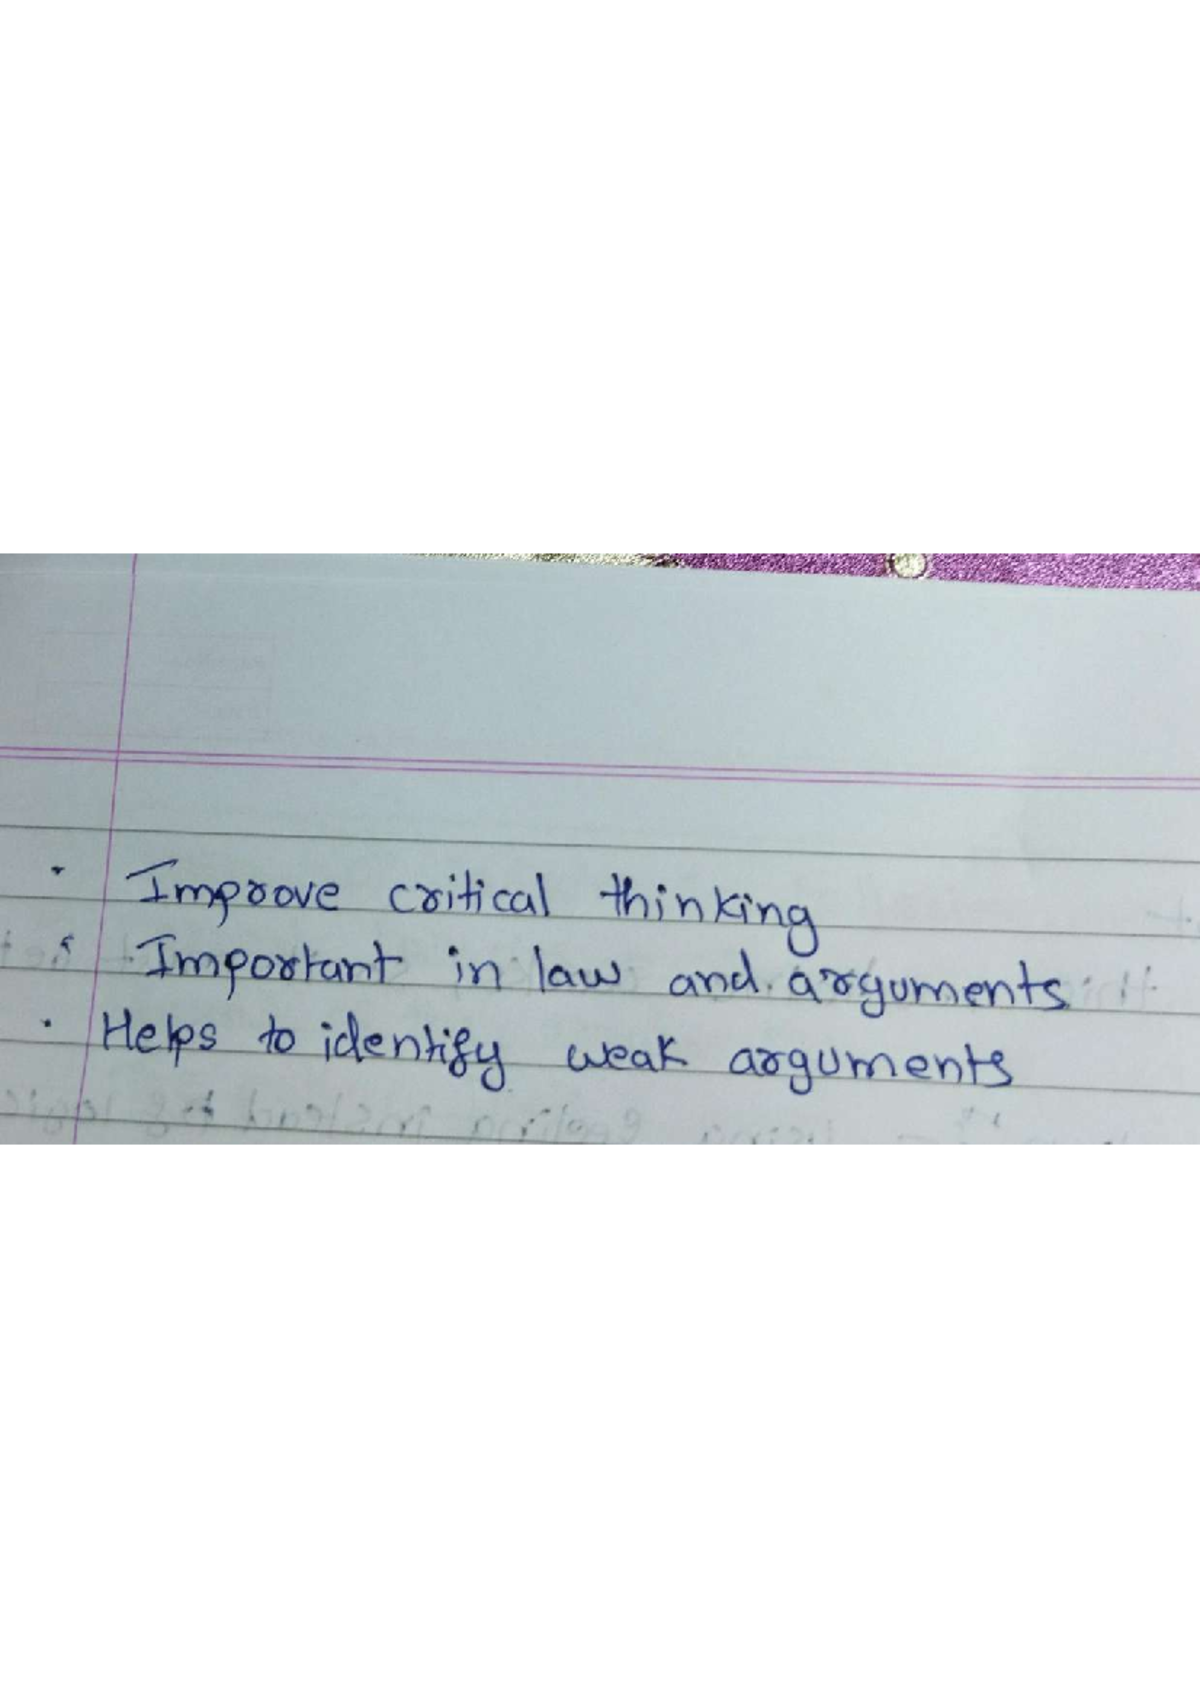 · Improve critical thinking
· Important in law and arguments
· Helps to identify weak arguments